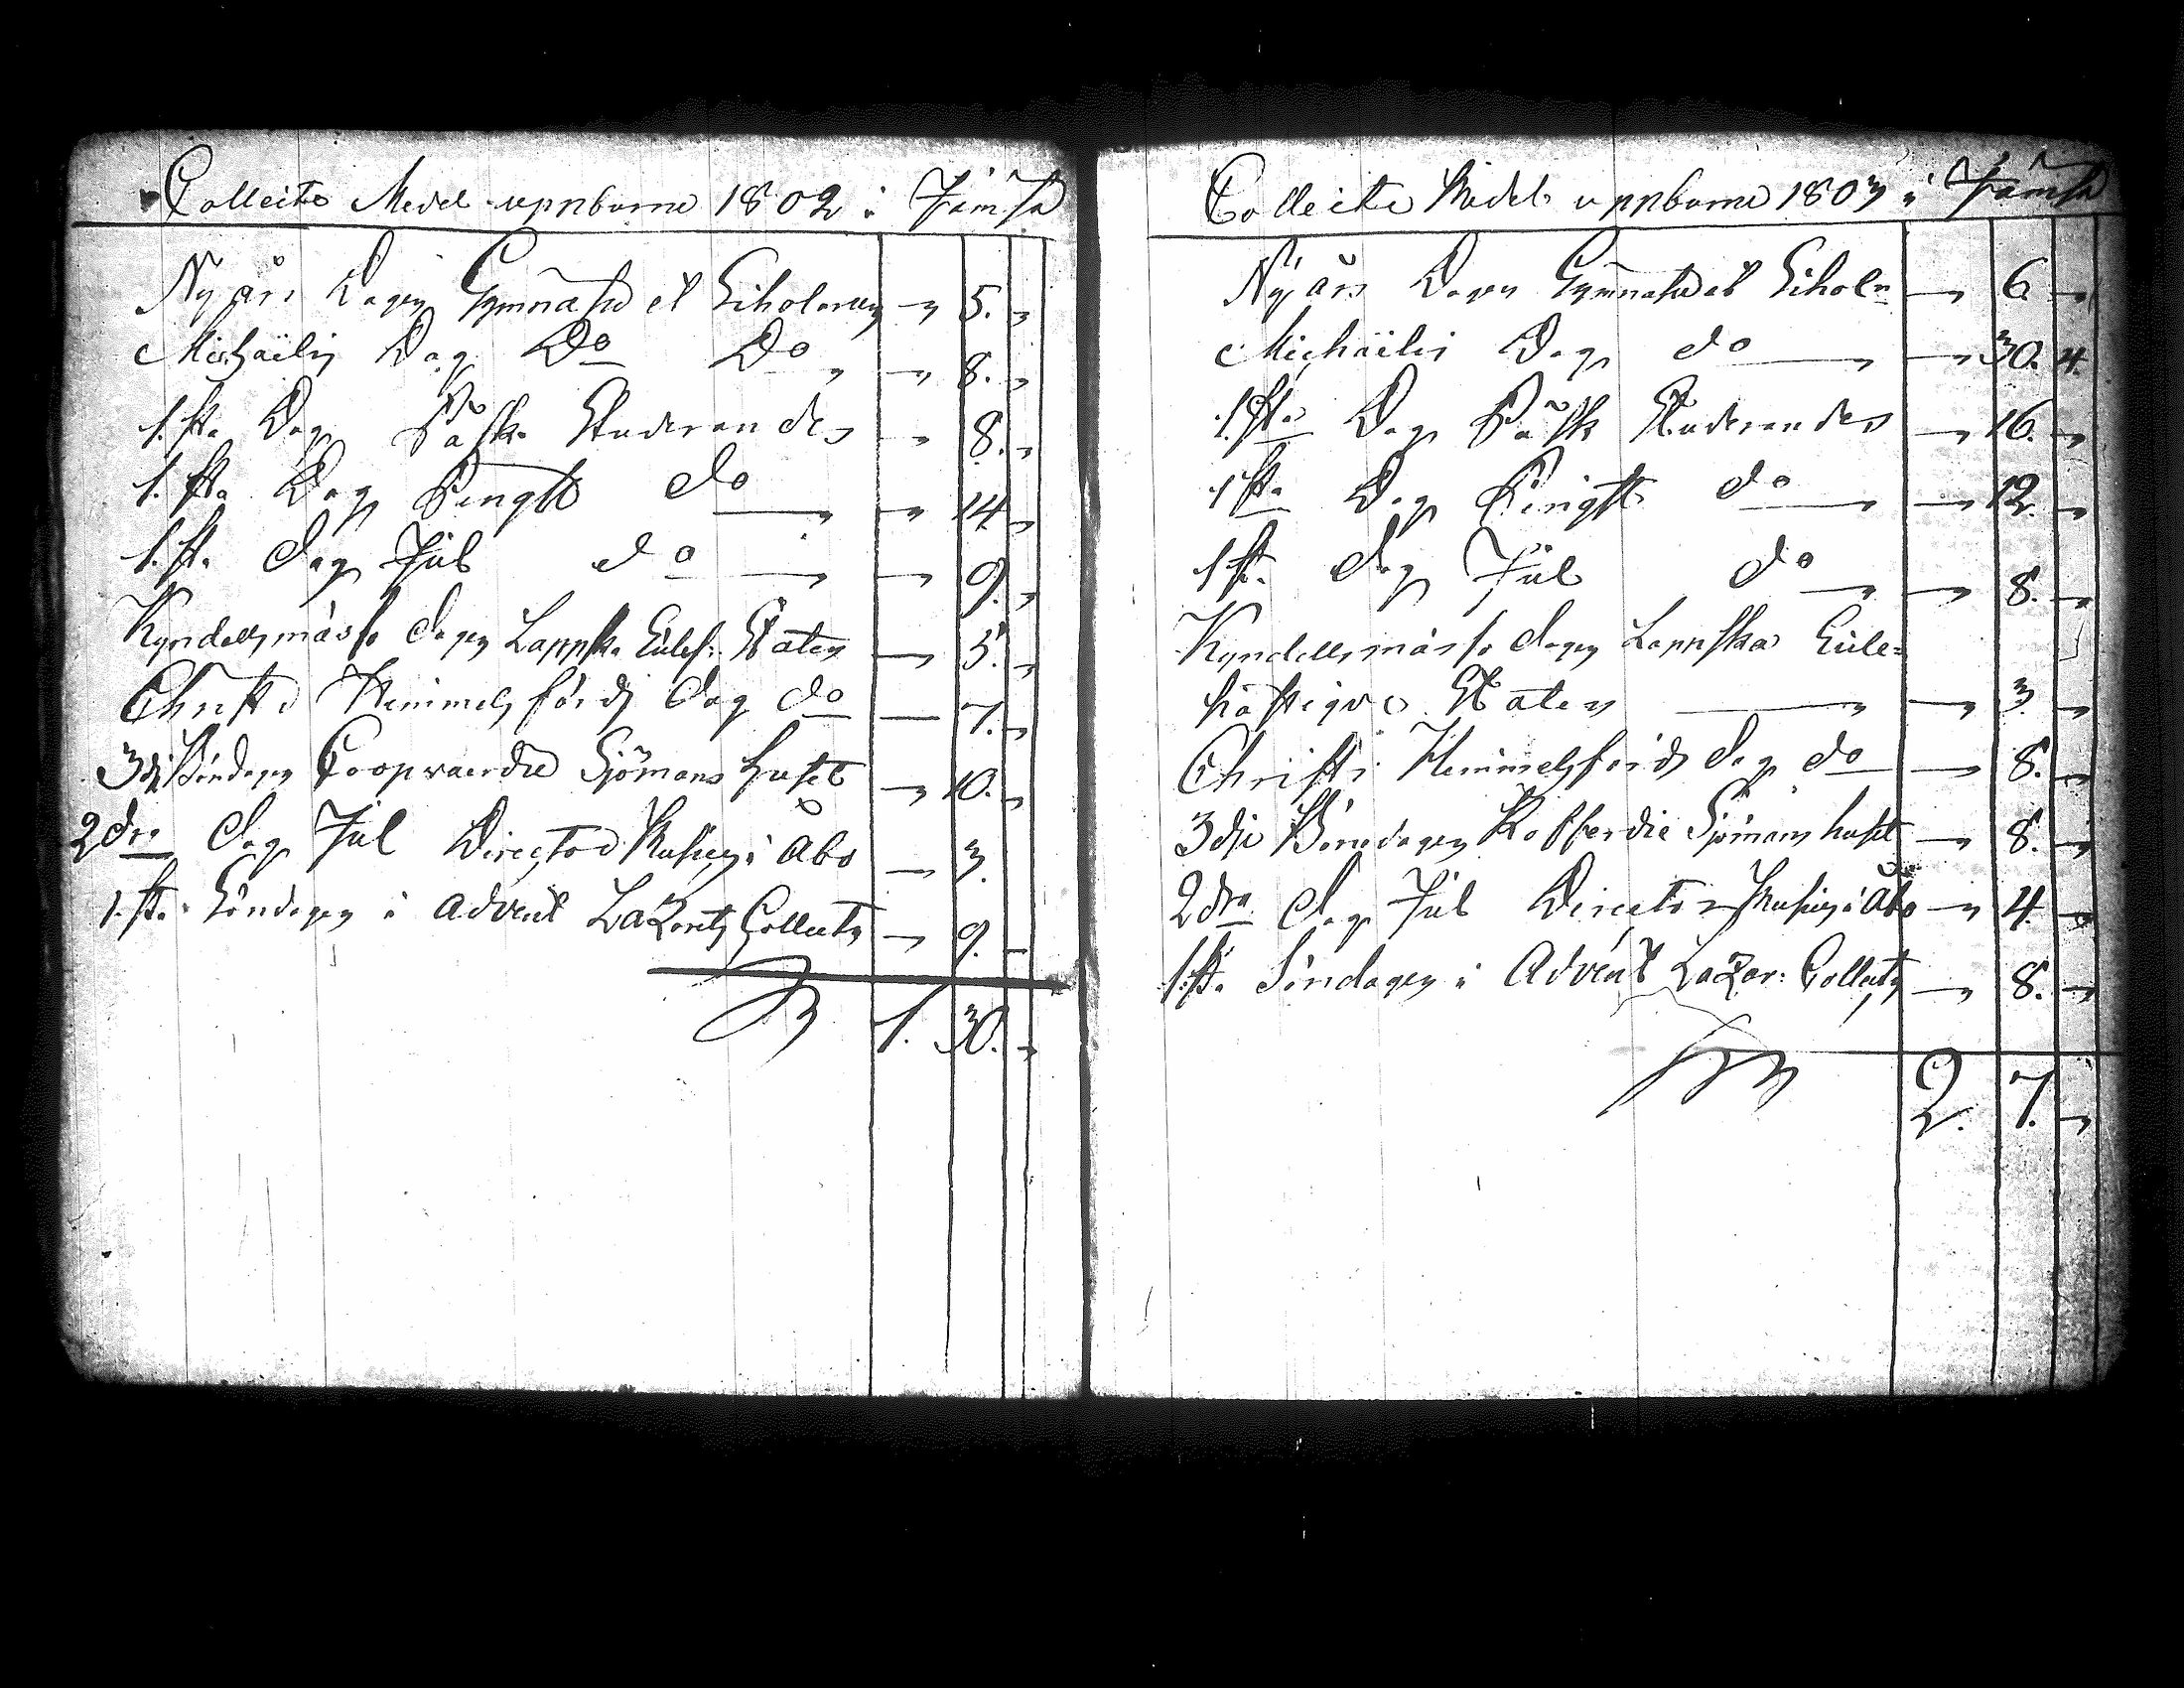 Collecte Medel uppburne 1802 i Jämsä
Nyårs Dagen Gymnasii et Scholarum „ 5. „
Michaëlis Dag Do Do „ „ 8. „
1.sta Dag Påsk Studerandes „ 8. „
1.sta Dag Pingst do „ 14 „
1.sta dag Jul do „ 9. „
Kyndelsmässo dagen Lappska Eccles: Staten „ 5. „
Christi Himmelsfärds dag do — 7. „
3dje Böndagen Coopvaerdie Sjömans huset „ 10. „
2dra dag Jul Director i Åbo „ 3.
1.sta Söndagen i Advent Lazaretts Collecten „ 9. „
1. 30. „
Collecte Medel uppburne 1803 i Jämsä
Nyårs Dagen Gymnasii et Schole „ 6. „
Michaëlis Dag do „ 30. 4.
1.sta Dag Påsk Studerandes „ 16. „
1sta Dag Pingst do „ 12. „
1sta dag Jul do „ 8. „
Kyndelsmässo dagen Lappska Eccle=
Staten „ 3. „
Christi Himmelsfärds dag do „ 8. „
3dje Böndagen Kofferdie Sjömans huset „ 8. „
2dra dag Jul Director i Åbo „ 4. „
1.sta Söndagen i Advent Lazar: Collecten „ 8. „
2. 7. „